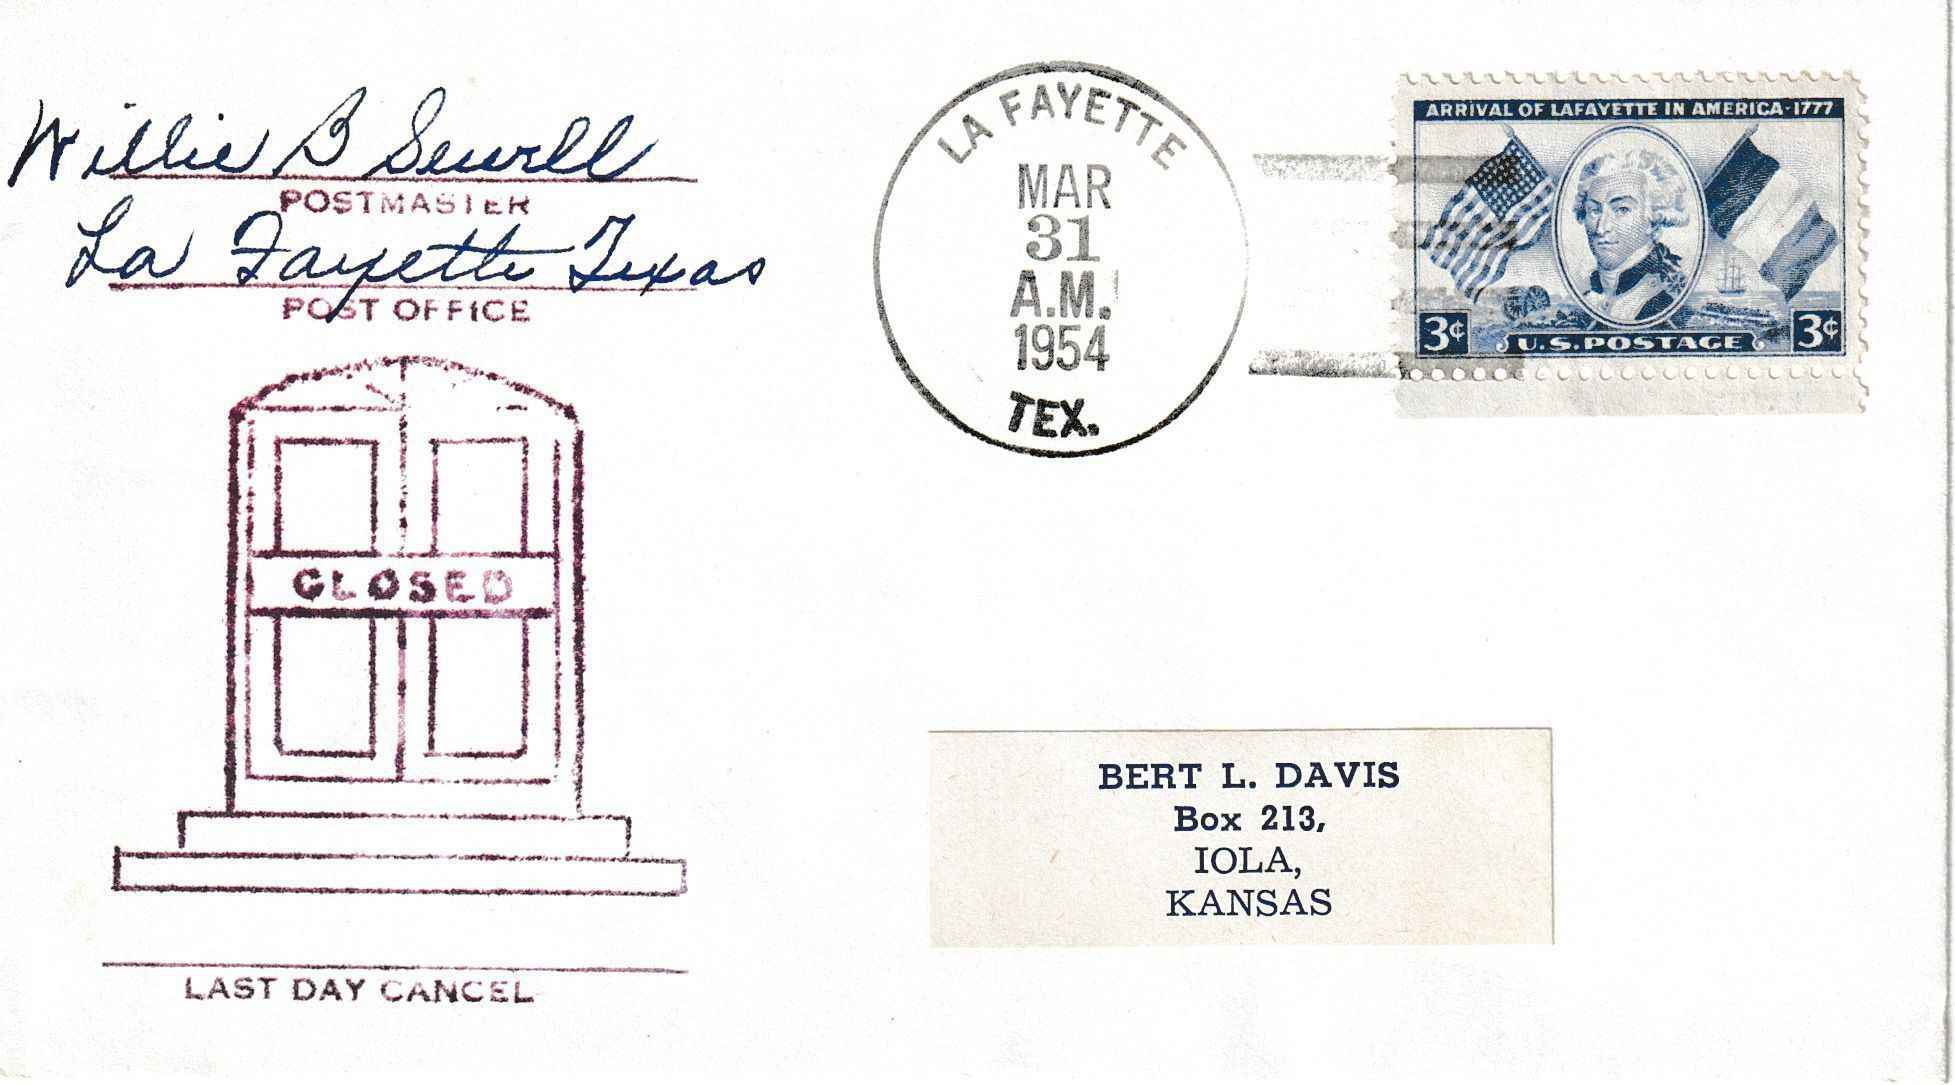 Willie B Sewell
POSTMASTER
La Fayette Texas
POST OFFICE
CLOSED
LAST DAY CANCEL
LA FAYETTE
MAR
31
A.M.
1954
TEX.
ARRIVAL OF LAFAYETTE IN AMERICA-1777
3¢ U.S. POSTAGE 3¢
BERT L. DAVIS
Box 213,
IOLA,
KANSAS